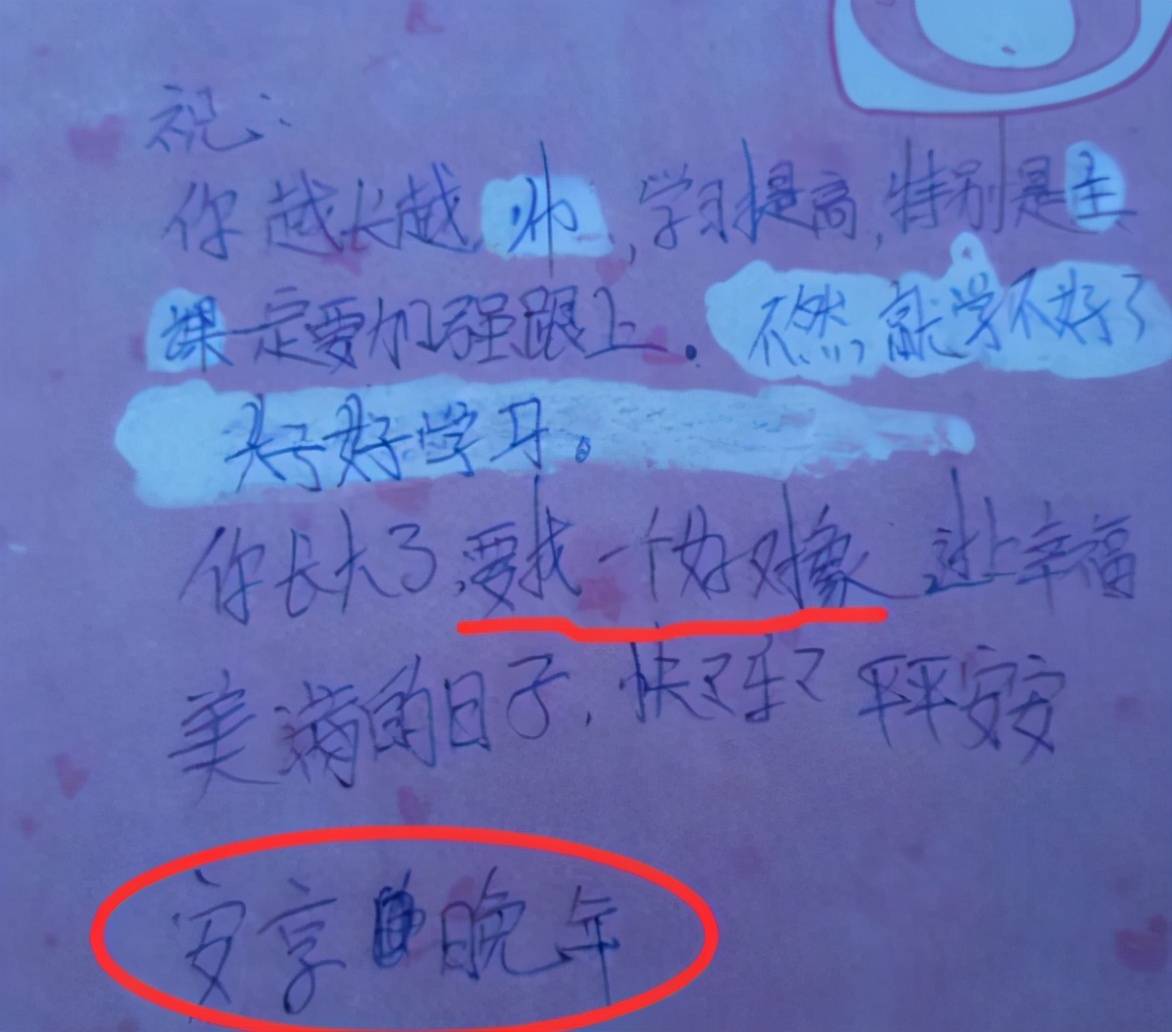 祝：
你越长越帅，学习提高，特别是主
课一定要加强跟上。不然，就学不好了
好好学习。
你长大了，要找一个好对象 过上幸福
美满的日子，快了乐了 平平安安
安享晚年